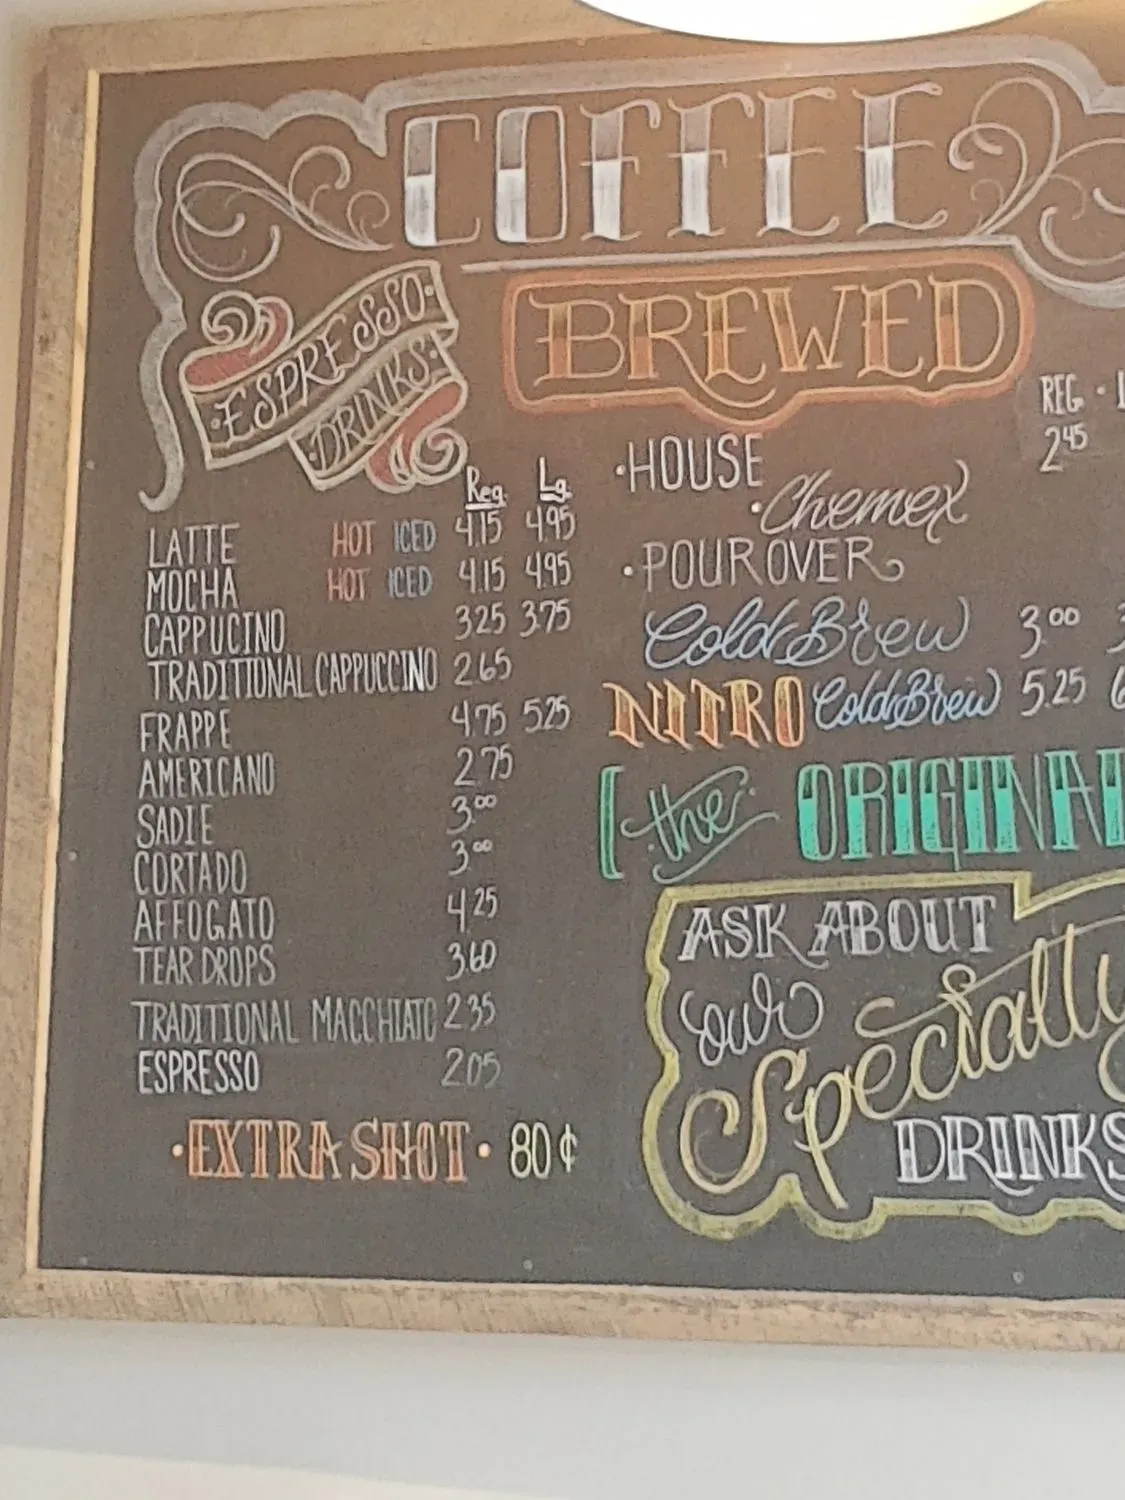 COFFEE
ESPRESSO
DRINKS
Reg. Lg.
LATTE HOT ICED 4.15 4.95
MOCHA HOT ICED 4.15 4.95
CAPPUCINO 3.25 3.75
TRADITIONAL CAPPUCCINO 2.65
FRAPPE 4.75 5.25
AMERICANO 2.75
SADIE 3.00
CORTADO 3.00
AFFOGATO 4.25
TEAR DROPS 3.60
TRADITIONAL MACCHIATO 2.35
ESPRESSO 2.05
·EXTRA SHOT· 80¢
BREWED
REG. ·
·HOUSE 2.45
·Chemex
·POUROVER
Cold Brew 3.00
NITRO Cold Brew 5.25
the ORIGINAL
ASK ABOUT
our
Specialty
DRINKS